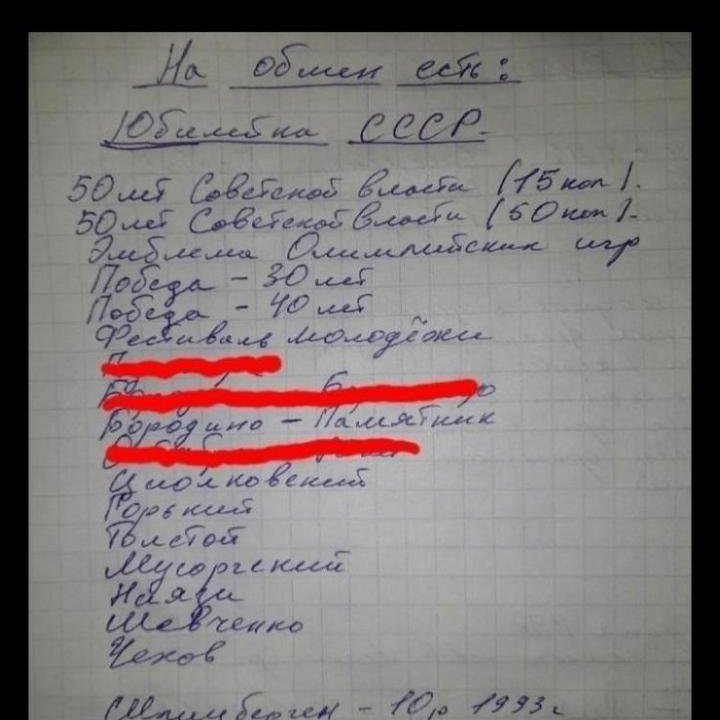 На обмен есть:
Юбилейка СССР.
50 лет Советской власти (15 коп).
50 лет Советской власти (50 коп).
Эмблема Олимпийских игр
Победа - 30 лет
Победа - 40 лет
Фестиваль молодёжи
Бородино - Памятник
Циолковский
Горький
Толстой
Мусоргский
Нязи
Шевченко
Чехов
Шпицберген - 10р 1993г